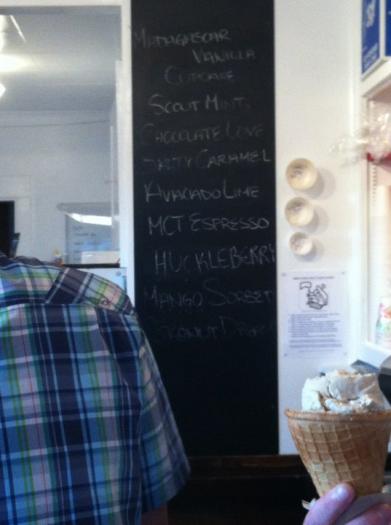 MADAGASCAR
VANILLA
CUPCAKE
SCOUT MINT
CHOCOLATE LOVE
SALTY CARAMEL
AVACADO LIME
MCT ESPRESSO
HUCKLEBERRY
MANGO SORBET
COCONUT